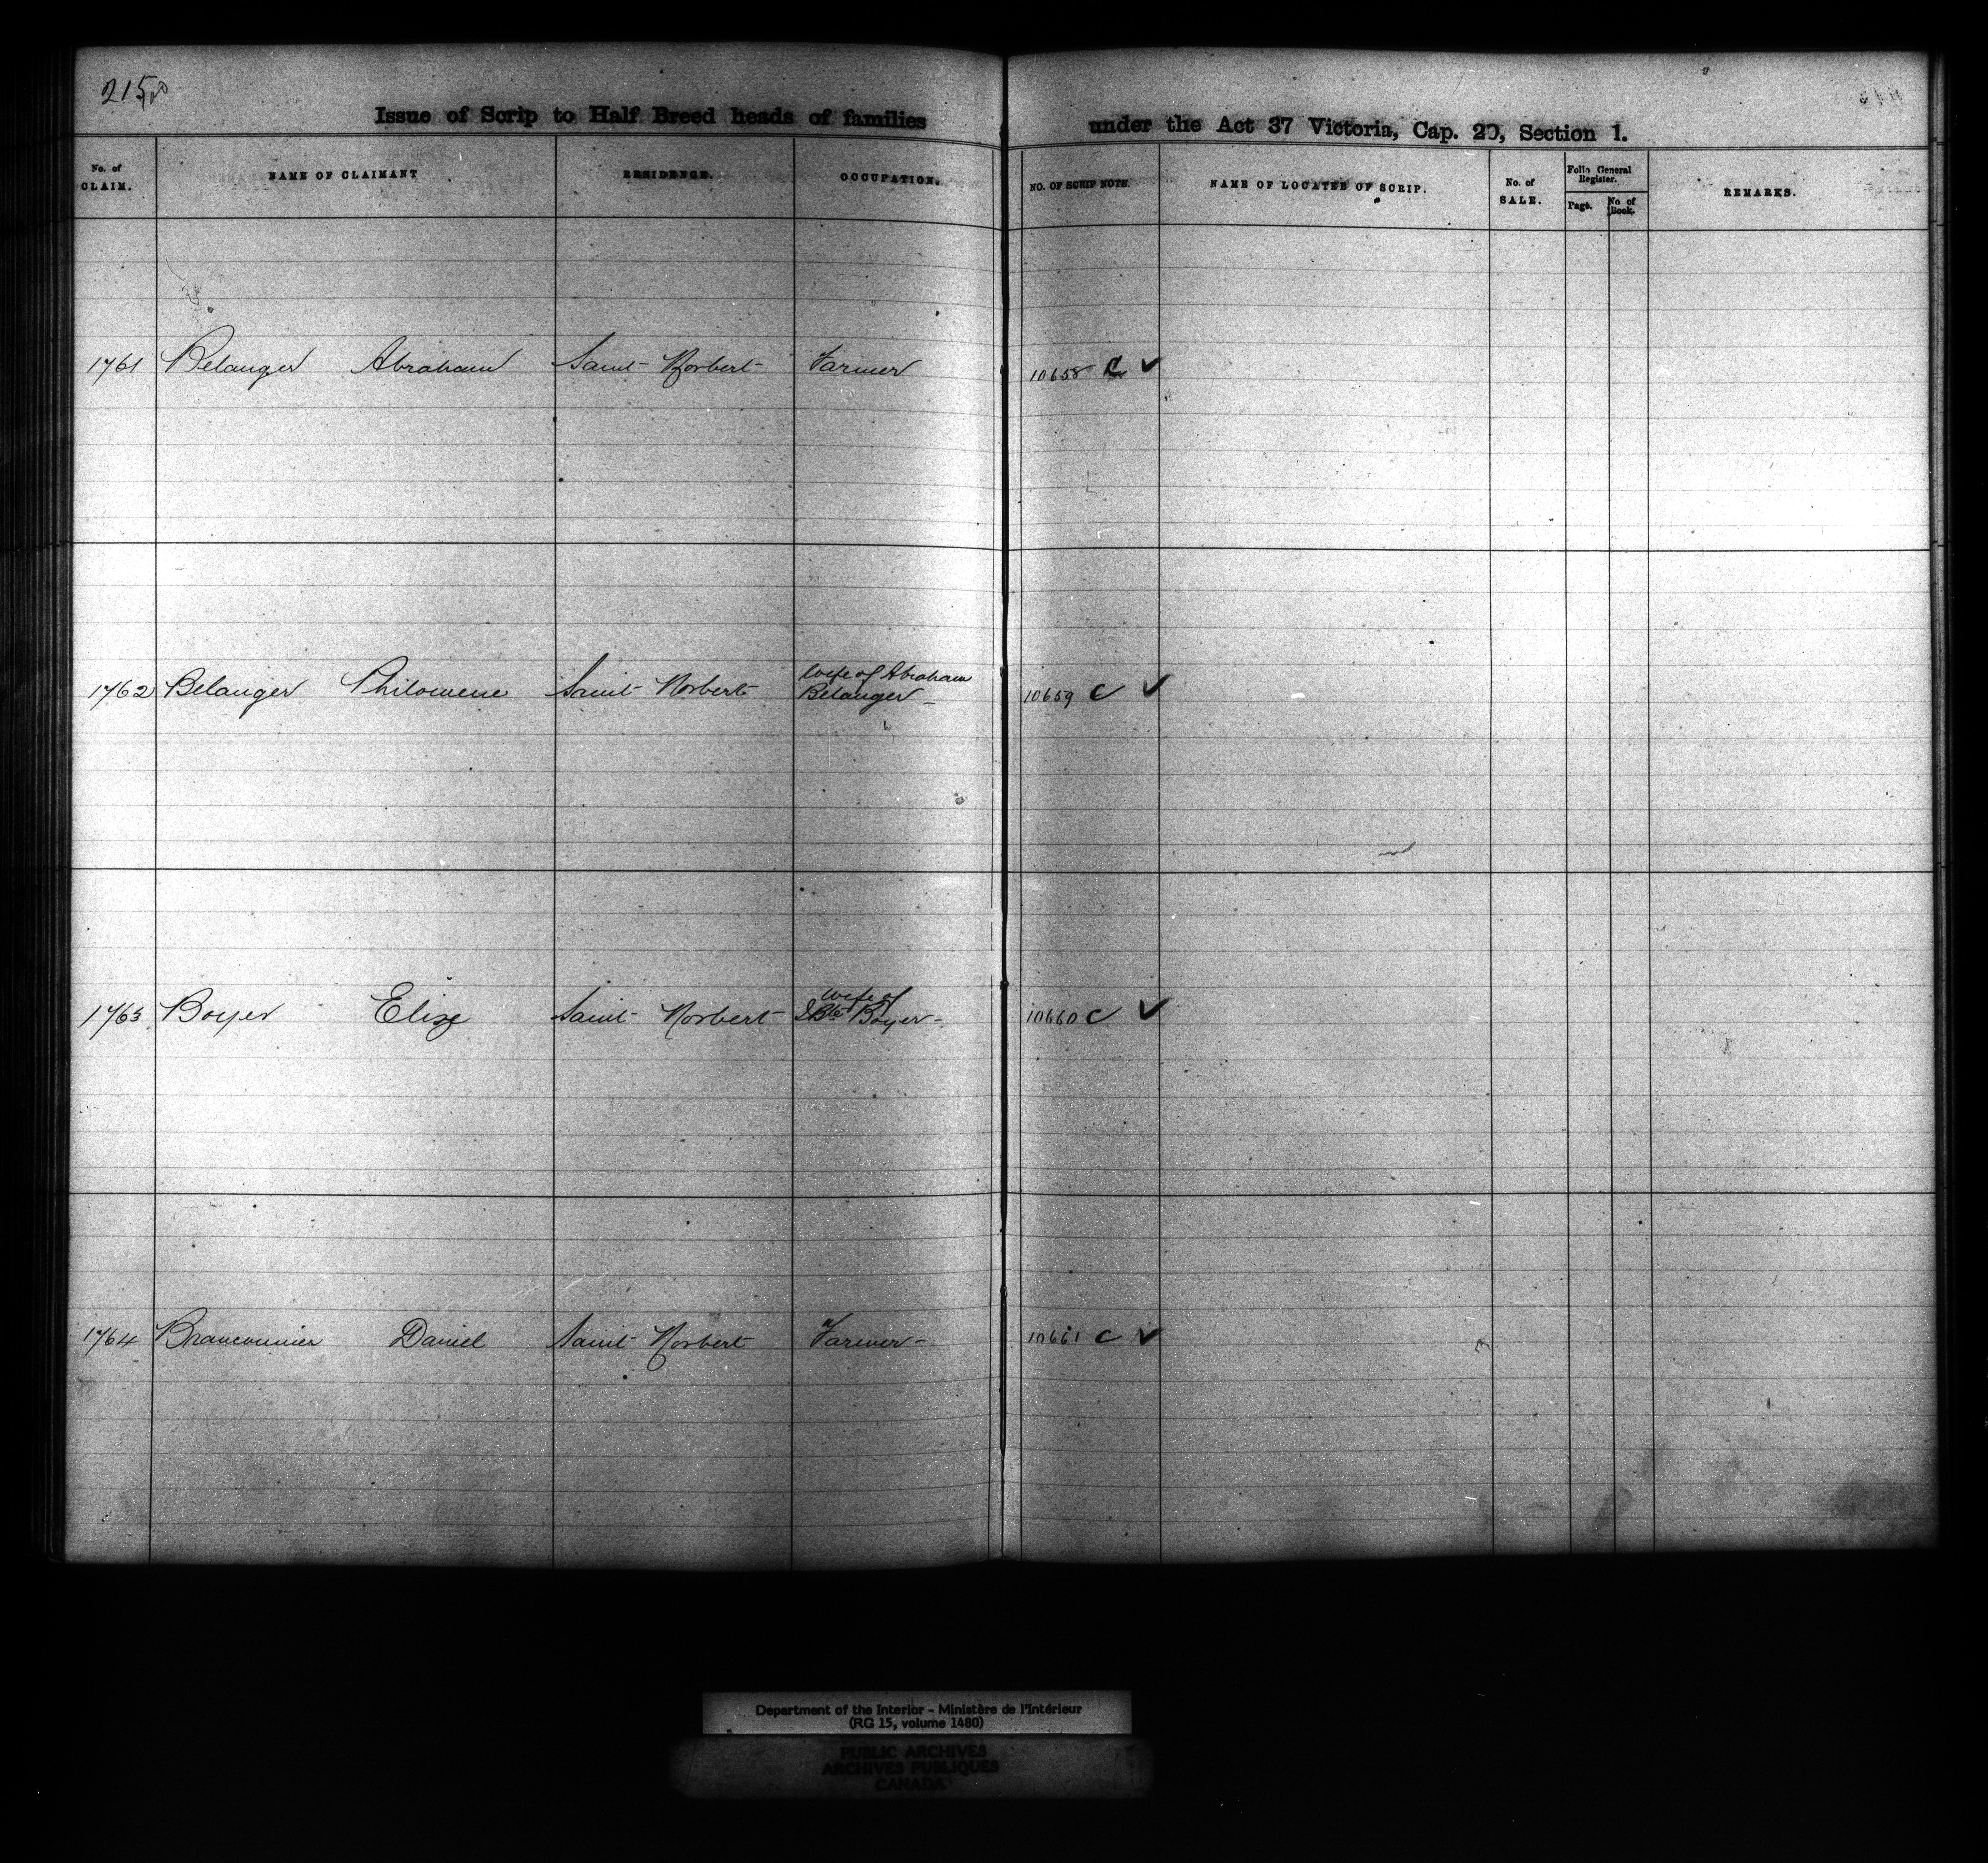 215
Issue of Scrip to Half Breed heads of families under the Act 37 Victoria, Cap. 20, Section 1.
No. of CLAIM. NAME OF CLAIMANT RESIDENCE. OCCUPATION. NO. OF SCRIP NOTE. NAME OF LOCATEE OF SCRIP. No. of SALE. Folio General Register. Page. No of Book. REMARKS.
1761 Belanger Abraham Saint Norbert Farmer 10658 C ✓
1762 Belanger Philomene Saint Norbert wife of Abraham Belanger - 10659 C ✓
1763 Boyer Elise Saint Norbert wife of J Bte Boyer - 10660 C ✓
1764 Branconnier Daniel Saint Norbert Farmer - 10661 C ✓
Department of the Interior - Ministère de l'Intérieur
(RG 15, volume 1480)
PUBLIC ARCHIVES
ARCHIVES PUBLIQUES
CANADA